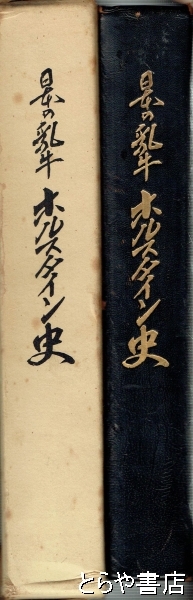 日本の乳牛
ホルスタイン史
日本の乳牛
ホルスタイン史
とらや書店